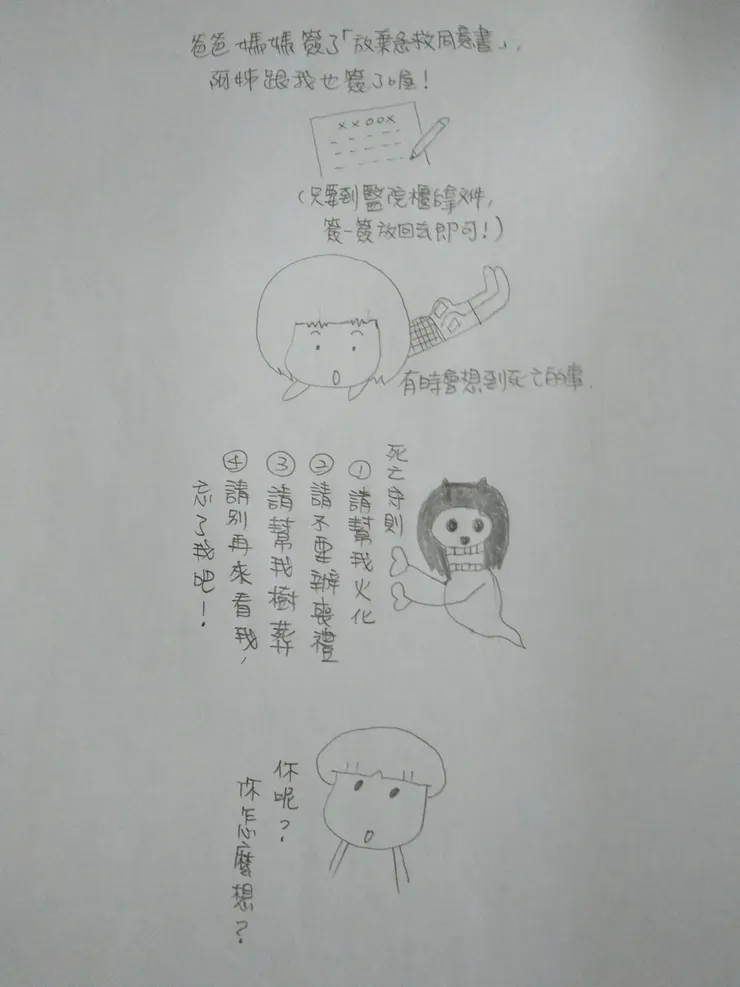 爸爸媽媽簽了「放棄急救同意書」,
阿姊跟我也簽了喔!
xxoox
(只要到醫院櫃台拿文件,
簽一簽放回去即可!)
有時會想到死亡的事.
死亡守則
①請幫我火化
②請不要辦喪禮
③請幫我樹葬
④請別再來看我,
忘了我吧!
你呢?
你怎麼想?